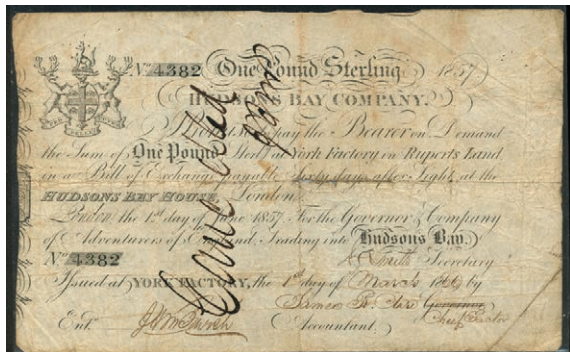 No. 4382 One Pound Sterling 1857
HUDSONS BAY COMPANY.
I Promise to pay the Bearer on Demand
the Sum of One Pound Sterl. at York Factory on Ruperts Land
in a Bill of Exchange payable Sixty days after Sight at the
HUDSONS BAY HOUSE, London
London the 1st day of June 1857. For the Governor & Company
of Adventurers of England, Trading into Hudsons Bay.
No. 4382 Smith Secretary
Issued at YORK FACTORY, the 1st day of March 1866 by
Ent. Accountant. Governor
Cancelled